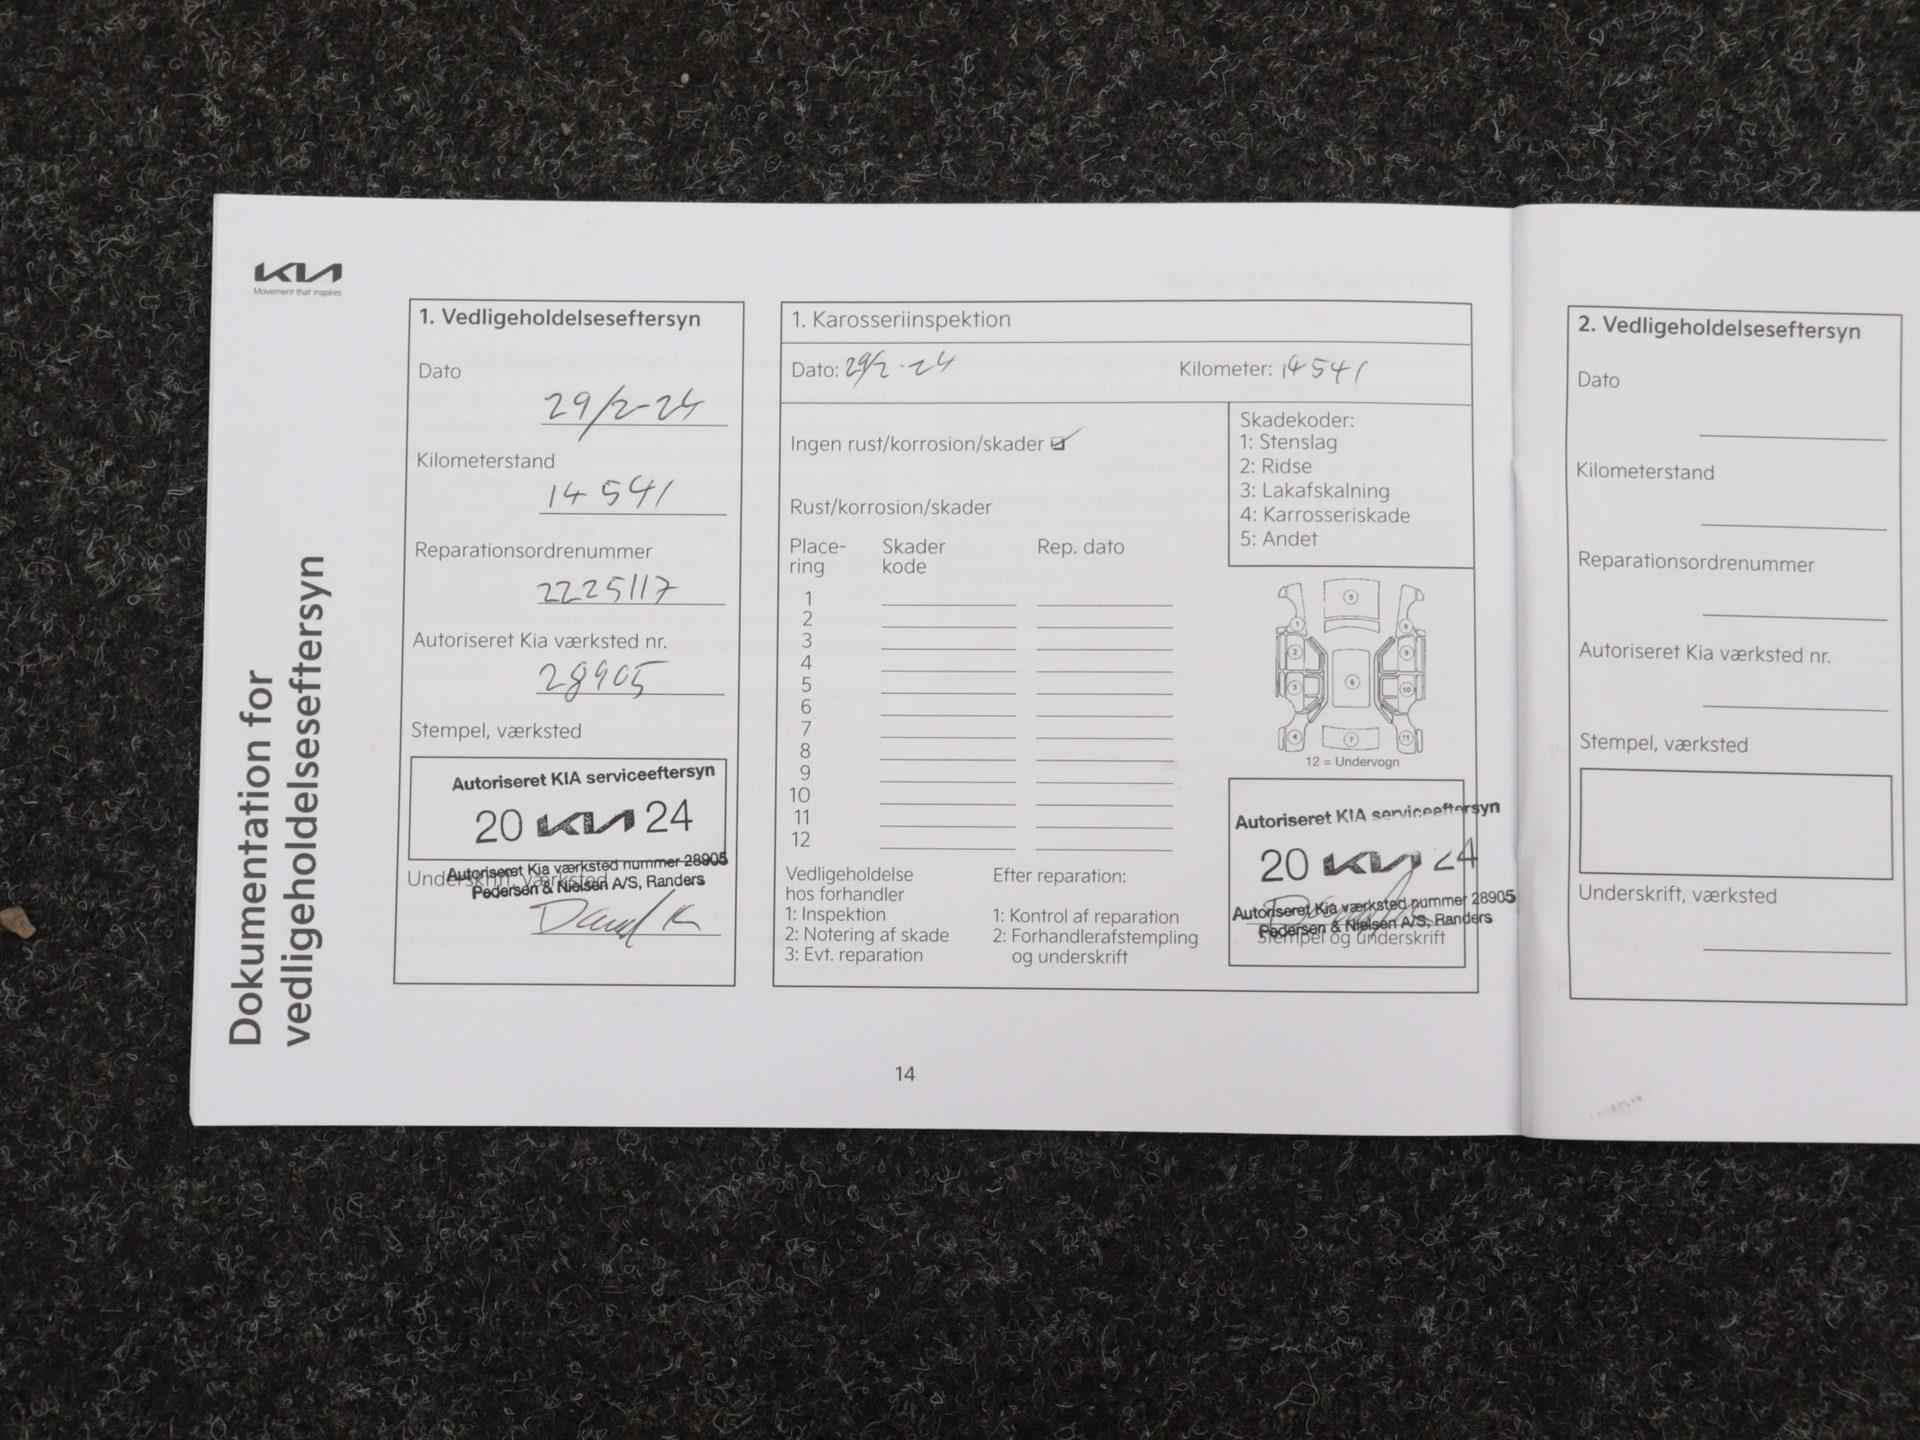 KIA
Movement that inspires
Dokumentation for
vedligeholdelseseftersyn
1. Vedligeholdelseseftersyn
Dato
29/2-24
Kilometerstand
14 541
Reparationsordrenummer
2225117
Autoriseret Kia værksted nr.
28905
Stempel, værksted
Autoriseret KIA serviceeftersyn
20 KIA 24
Autoriseret Kia værksted nummer 28905
Pedersen & Nielsen A/S, Randers
Underskrift, værksted
1. Karosseriinspektion
Dato: 29/2-24 Kilometer: 14 541
Ingen rust/korrosion/skader
Rust/korrosion/skader
Place-
ring
Skader
kode
Rep. dato
1
2
3
4
5
6
7
8
9
10
11
12
Skadekoder:
1: Stenslag
2: Ridse
3: Lakafskalning
4: Karrosseriskade
5: Andet
12 = Undervogn
Vedligeholdelse
hos forhandler
1: Inspektion
2: Notering af skade
3: Evt. reparation
Efter reparation:
1: Kontrol af reparation
2: Forhandlerafstempling
og underskrift
Autoriseret KIA serviceeftersyn
20 KIA 24
Autoriseret Kia værksted nummer 28905
Pedersen & Nielsen A/S, Randers
Stempel og underskrift
14
2. Vedligeholdelseseftersyn
Dato
Kilometerstand
Reparationsordrenummer
Autoriseret Kia værksted nr.
Stempel, værksted
Underskrift, værksted